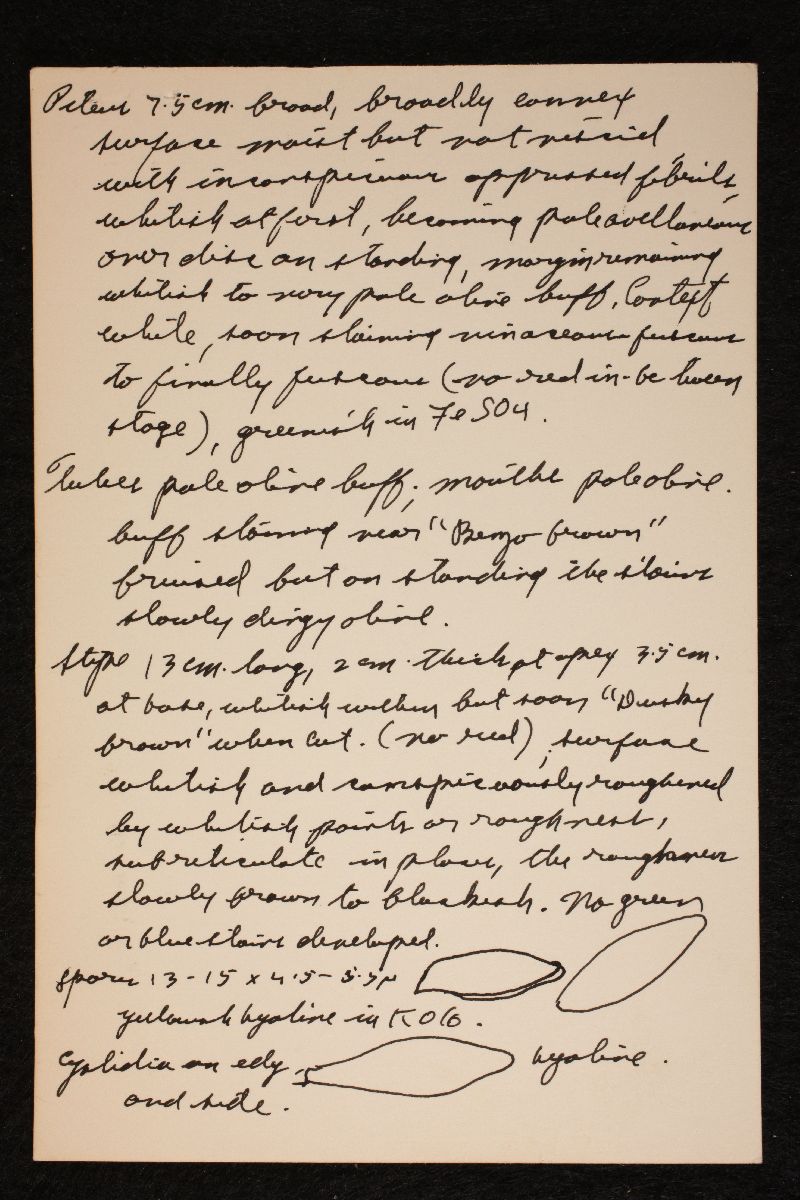 Pileus 7.5 cm. broad, broadly convex
surface moist but not viscid,
with inconspicuous appressed fibrils,
whitish at first, becoming pale avellaneous
over disc on standing, margin remaining
whitish to very pale olive buff. Context
white, soon staining vinaceous fuscous
to finally fuscous (no red in-between
stage), greenish in FeSO4.
Tubes pale olive buff; mouths pale olive.
buff staining near "Benzo brown"
bruised but on standing the stains
slowly dingy olive.
Stipe 13 cm. long, 2 cm. thick at apex 3.5 cm.
at base, whitish within but soon "Dusky
brown" when cut. (no red); surface
whitish and conspicuously roughened
by whitish points or roughness,
subreticulate in places, the roughness
slowly brown to blackish. No green
or blue stains developed.
Spores 13-15 x 4.5-5.5µ
yellowish hyaline in KOH.
Cystidia on edge hyaline.
and side.